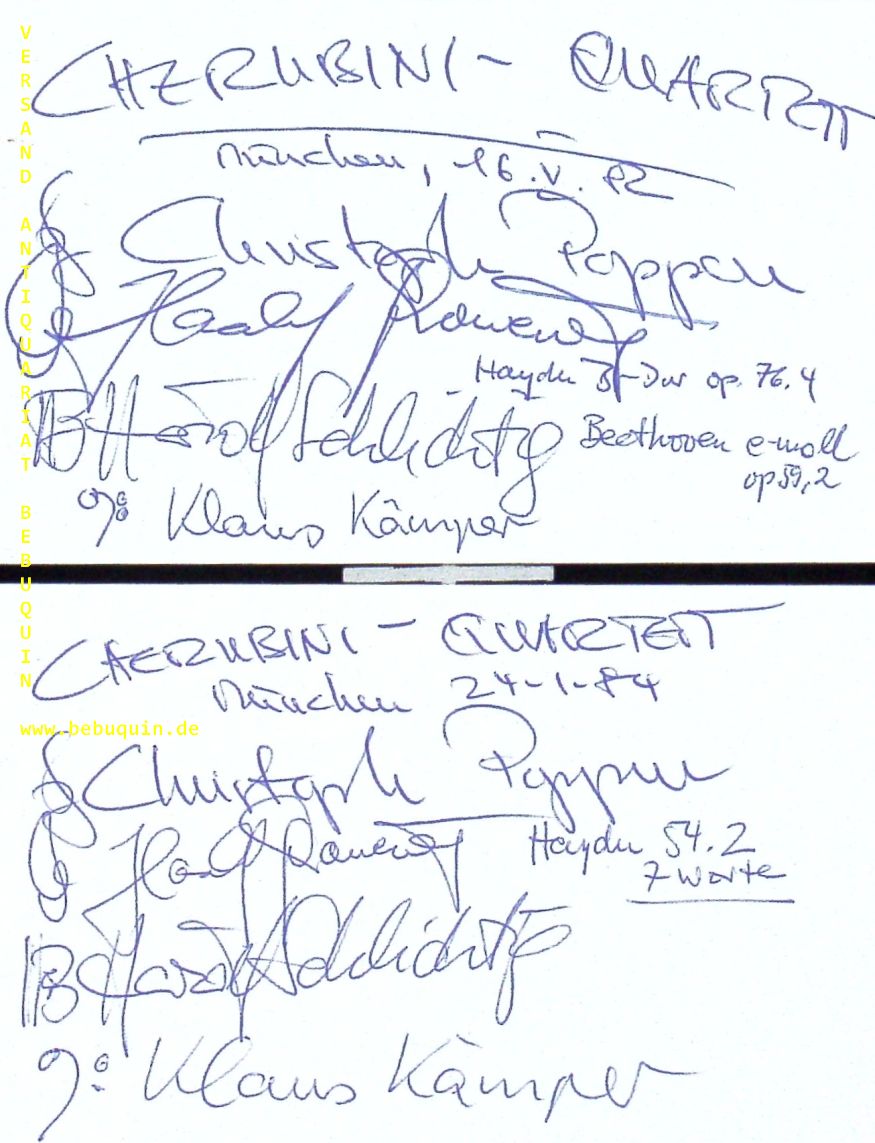 VERSAND ANTIQUARIAT BEBUQUIN
www.bebuquin.de
CHERUBINI - QUARTETT
München, 16.V.82
Christoph Poppen
Harald Schlichtig
Haydn B-Dur op. 76.4
Beethoven e-moll
op 59,2
Klaus Kämper
CHERUBINI - QUARTETT
München 24-1-84
Christoph Poppen
Haydn 54.2
7 Worte
Harald Schlichtig
Klaus Kämper